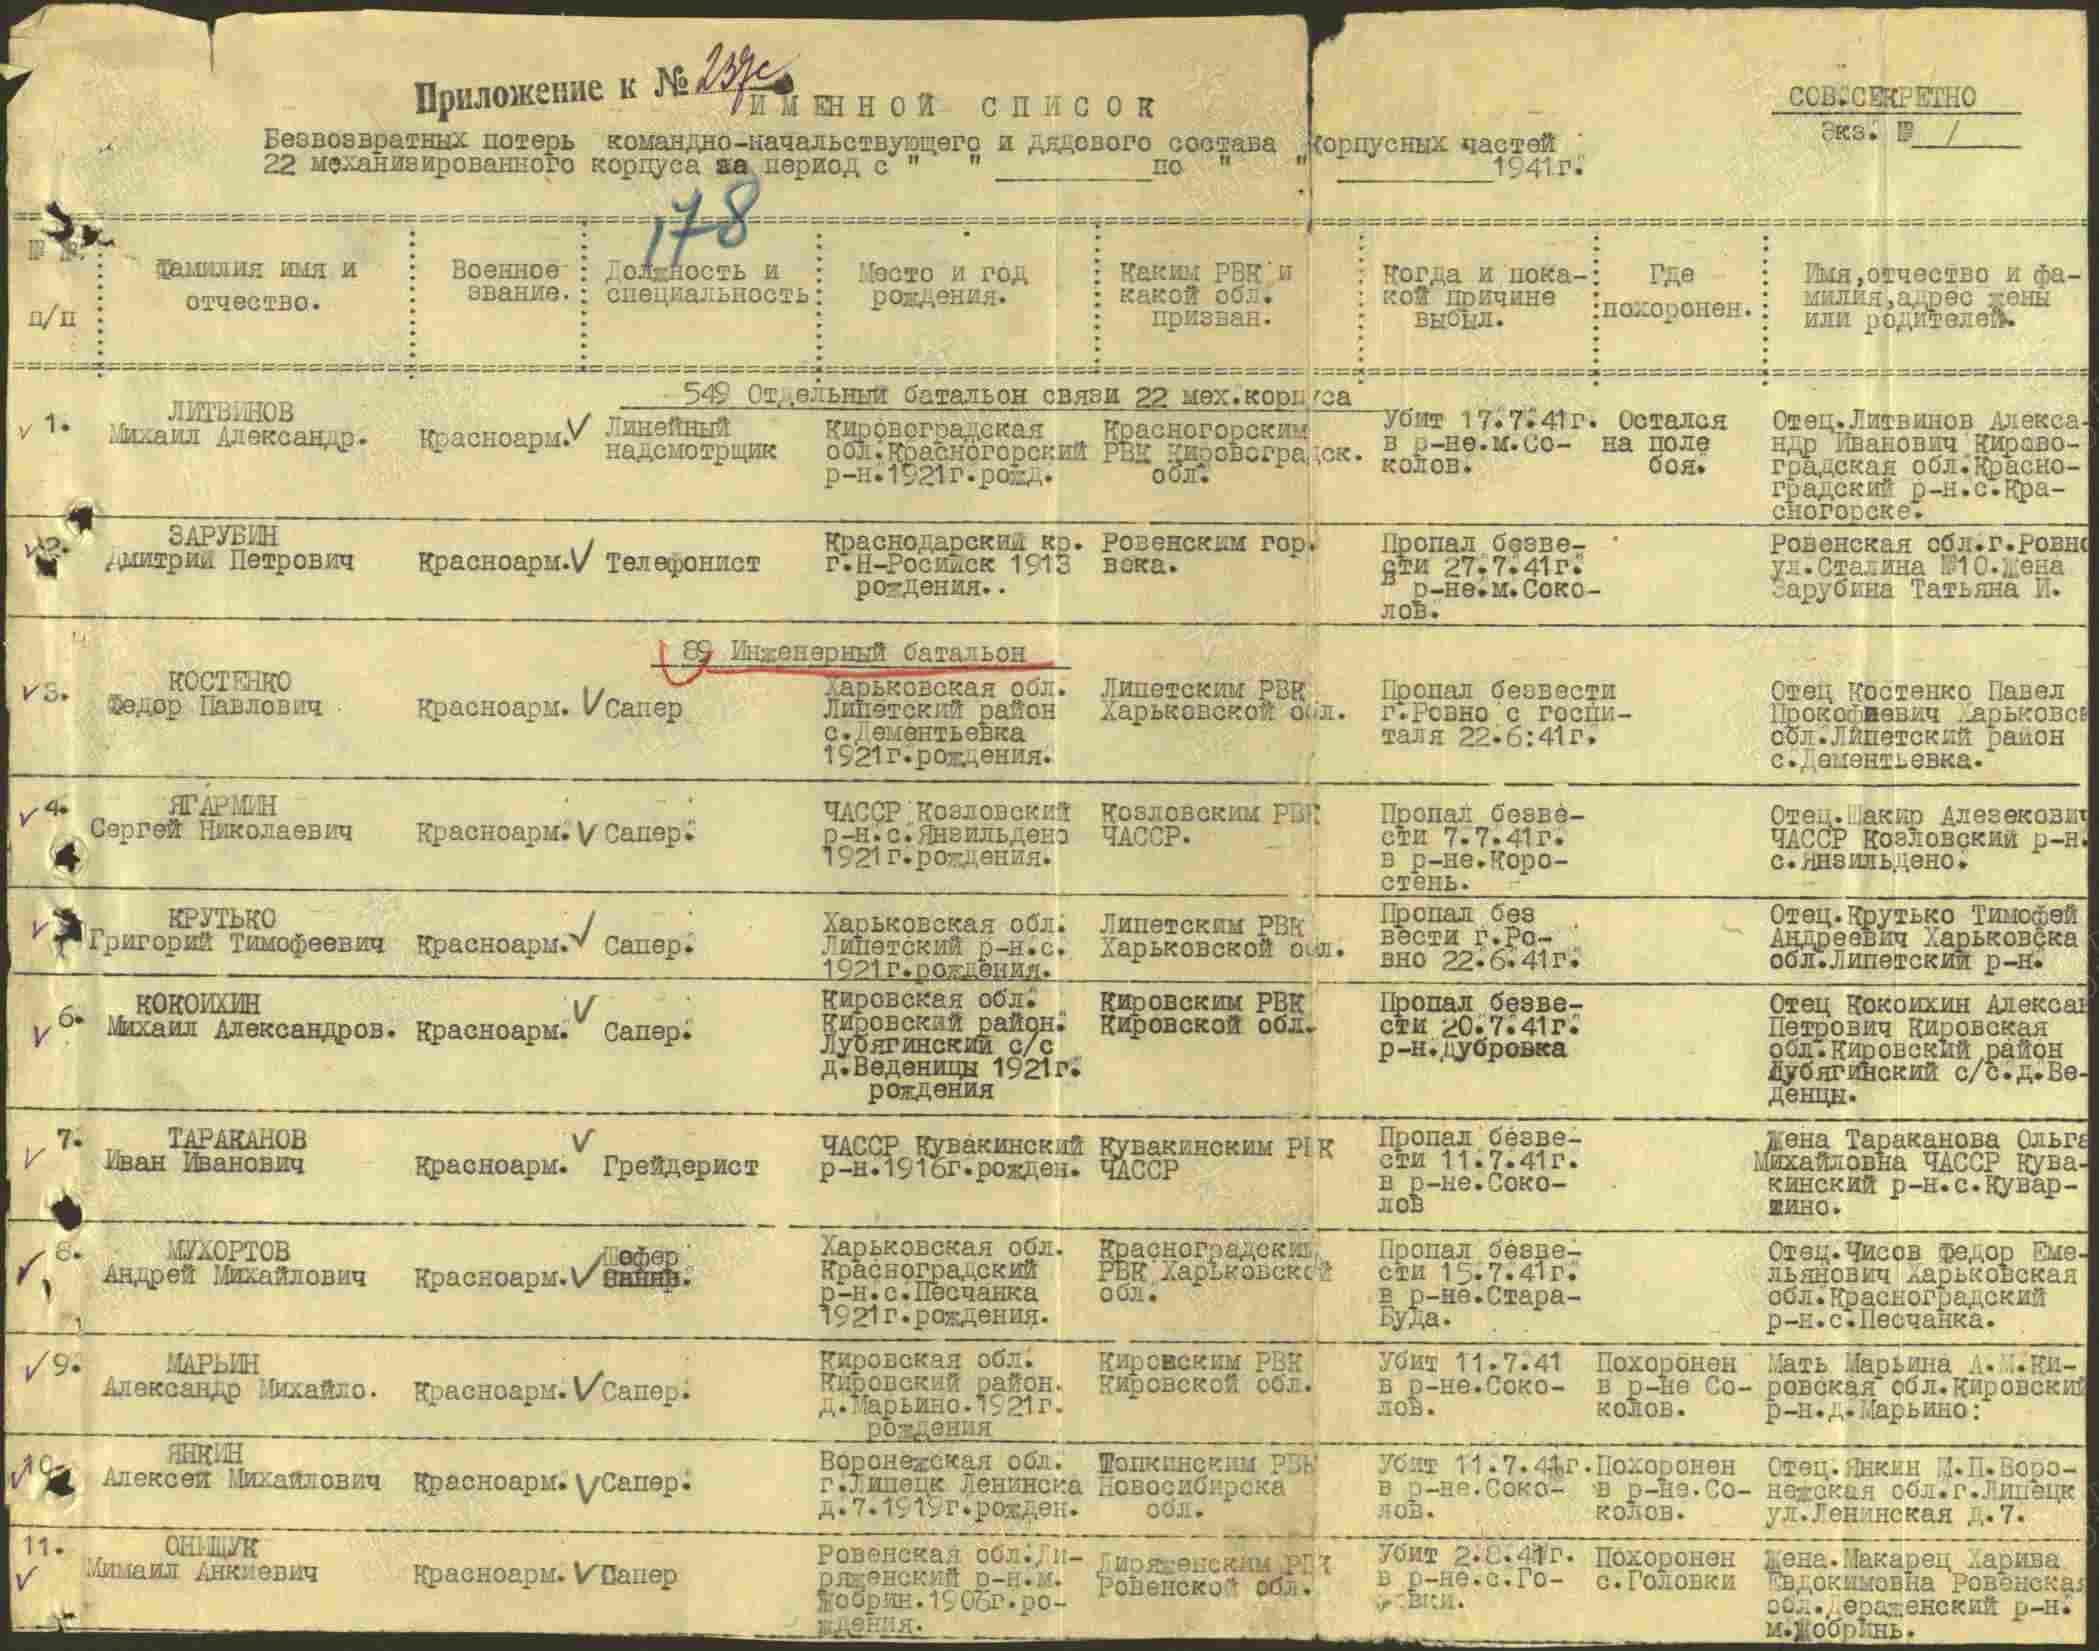 Приложение к № 237с
ИМЕННОЙ СПИСОК
СОВ.СЕКРЕТНО
Экз. № 1
Безвозвратных потерь командно-начальствующего и дядового состава корпусных частей
22 механизированного корпуса за период с " " по " " 1941г.
178
№ №. п/п
Фамилия имя и
отчество.
Военное
звание.
Должность и
специальность
Место и год
рождения.
Каким РВК и
какой обл.
призван.
Когда и пока-
кой причине
выбыл.
Где
похоронен.
Имя,отчество и фа-
милия,адрес жены
или родителей.
549 Отдельный батальон связи 22 мех.корпуса
1.
ЛИТВИНОВ
Михаил Александр.
Красноарм.
Линейный
надсмотрщик
Кировоградская
обл.Красногорский
р-н.1921г.рожд.
Красногорским
РВК Кировоградск.
обл.
Убит 17.7.41г.
в р-не.м.Со-
колов.
Остался
на поле
боя.
Отец.Литвинов Алекса-
ндр Иванович Кирово-
градская обл.Красно-
градский р-н.с.Кра-
сногорске.
2.
ЗАРУБИН
Дмитрий Петрович
Красноарм.
Телефонист
Краснодарский кр.
г.Н-Росийск 1913
рождения..
Ровенским гор.
века.
Пропал безве-
сти 27.7.41г.
в р-не.м.Соко-
лов.
Ровенская обл.г.Ровно
ул.Сталина №10.Жена
Зарубина Татьяна И.
89 Инженерный батальон
3.
КОСТЕНКО
Федор Павлович
Красноарм.
Сапер
Харьковская обл.
Липетский район
с.Дементьевка
1921г.рождения.
Липетским РВК
Харьковской обл.
Пропал безвести
г.Ровно с госпи-
таля 22.6:41г.
Отец Костенко Павел
Прокофиевич Харьковск
обл.Липетский район
с.Дементьевка.
4.
ЯГАРМИН
Сергей Николаевич
Красноарм.
Сапер.
ЧАССР Козловский
р-н.с.Янзильдено
1921г.рождения.
Козловским РВК
ЧАССР.
Пропал безве-
сти 7.7.41г.
в р-не.Коро-
стень.
Отец.Шакир Алезекович
ЧАССР Козловский р-н.
с.Янзильдено.
КРУТЬКО
Григорий Тимофеевич
Красноарм.
Сапер.
Харьковская обл.
Липетский р-н.с.
1921г.рождения.
Липетским РВК
Харьковской обл.
Пропал без
вести г.Ро-
вно 22.6.41г.
Отец.Крутько Тимофей
Андреевич Харьковска
обл.Липетский р-н.
6.
КОКОИХИН
Михаил Александров.
Красноарм.
Сапер.
Кировская обл.
Кировский район.
Лубягинский с/с
д.Веденицы 1921г.
рождения
Кировским РВК
Кировской обл.
Пропал безве-
сти 20.7.41г.
р-н.Дубровка
Отец Кокоихин Алексан
Петрович Кировская
обл.Кировский район
Лубягинский с/с.д.Ве-
денцы.
7.
ТАРАКАНОВ
Иван Иванович
Красноарм.
Грейдерист
ЧАССР Кувакинский
р-н.1916г.рожден.
Кувакинским РВК
ЧАССР
Пропал безве-
сти 11.7.41г.
в р-не.Соко-
лов
Жена Тараканова Ольга
Михайловна ЧАССР Кува-
кинский р-н.с.Кувар-
жино.
8.
МУХОРТОВ
Андрей Михайлович
Красноарм.
Шофер
Харьковская обл.
Красноградский
р-н.с.Песчанка
1921г.рождения.
Красноградский
РВК Харьковской
обл.
Пропал безве-
сти 15.7.41г.
в р-не.Стара-
Буда.
Отец.Чисов Федор Еме-
льянович Харьковская
обл.Красноградский
р-н.с.Песчанка.
9.
МАРЬИН
Александр Михайло.
Красноарм.
Сапер.
Кировская обл.
Кировский район.
д.Марьино.1921г.
рождения
Кировским РВК
Кировской обл.
Убит 11.7.41
в р-не.Соко-
лов.
Похоронен
в р-не Со-
колов.
Мать Марьина А.М.Ки-
ровская обл.Кировский
р-н.д.Марьино:
10.
ЯНКИН
Алексей Михайлович
Красноарм.
Сапер.
Воронежская обл.
г.Липецк Ленинска
д.7.1919г.рожден.
Топкинским РВК
Новосибирска
обл.
Убит 11.7.41г.
в р-не.Соко-
лов.
Похоронен
в р-не.Со-
колов.
Отец.Янкин М.П.Воро-
нежская обл.г.Липецк
ул.Ленинская д.7.
11.
ОНИЩУК
Мимаил Анкиевич
Красноарм.
Сапер
Ровенская обл.Ди-
ряженский р-н.м.
Жобрин.1906г.ро-
ждения.
Диряженским РВК
Ровенской обл.
Убит 2.8.41г.
в р-не.с.Го-
ловки.
Похоронен
с.Головки
Жена.Макарец Харива
Евдокимовна Ровенская
обл.Дераженский р-н.
м.Жобринь.